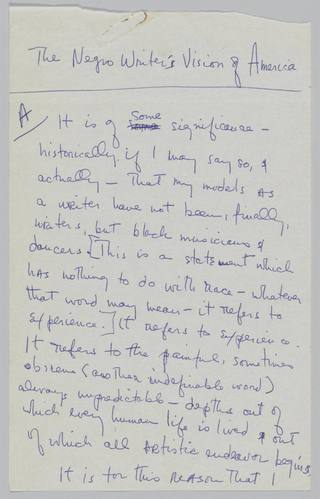 The Negro Writer's Vision of America
A/ It is of some significance –
historically, if I may say so, &
actually – that my models as
a writer have not been, finally,
writers, but black musicians &
dancers. [This is a statement which
has nothing to do with race – whatever
that word may mean – it refers to
experience.] It refers to experience.
It refers to the painful, sometimes
obscene (another indefinable word)
always unpredictable – depths out of
which every human life is lived & out
of which all artistic endeavor begins
It is for this reason that I